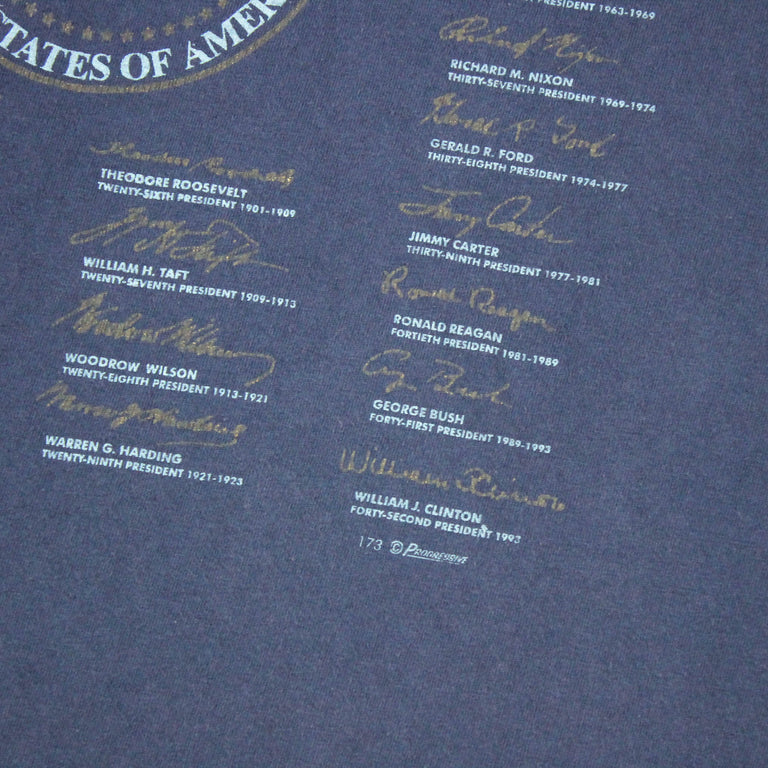 STATES OF AMER
Theodore Roosevelt
THEODORE ROOSEVELT
TWENTY-SIXTH PRESIDENT 1901-1909
Wm H Taft
WILLIAM H. TAFT
TWENTY-SEVENTH PRESIDENT 1909-1913
Woodrow Wilson
WOODROW WILSON
TWENTY-EIGHTH PRESIDENT 1913-1921
Warren G Harding
WARREN G. HARDING
TWENTY-NINTH PRESIDENT 1921-1923
PRESIDENT 1963-1969
Richard Nixon
RICHARD M. NIXON
THIRTY-SEVENTH PRESIDENT 1969-1974
Gerald R. Ford
GERALD R. FORD
THIRTY-EIGHTH PRESIDENT 1974-1977
Jimmy Carter
JIMMY CARTER
THIRTY-NINTH PRESIDENT 1977-1981
Ronald Reagan
RONALD REAGAN
FORTIETH PRESIDENT 1981-1989
Gg Bush
GEORGE BUSH
FORTY-FIRST PRESIDENT 1989-1993
William Clinton
WILLIAM J. CLINTON
FORTY-SECOND PRESIDENT 1993
173 © PROGRESSIVE